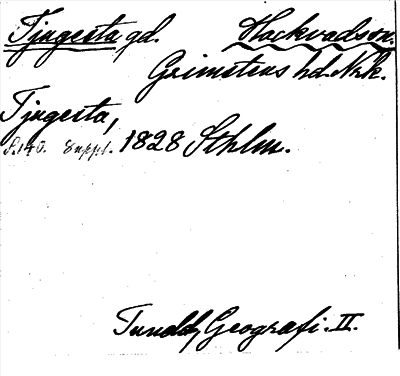 Tjugesta gd. Hackvads sn.
Grimstens hd. Nrk.
Tjugesta,
S. 140. Suppl. 1828 Sthlm.
Tuneld, Geografi. II.